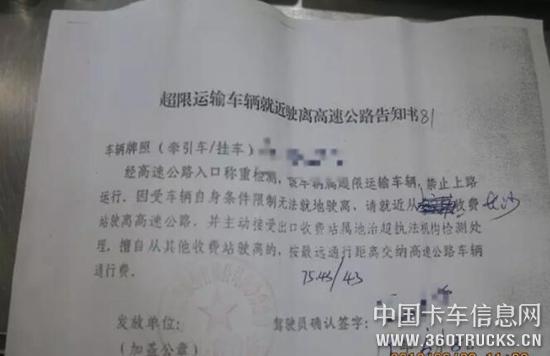 超限运输车辆就近驶离高速公路告知书81
车辆牌照（牵引车/挂车）
经高速公路入口称重检测，该车辆属超限运输车辆，禁止上路
运行。因受车辆自身条件限制无法就地驶离，请就近从 收费 长沙
站驶离高速公路，并主动接受出口收费站属地治超执法机构检测处
理，擅自从其他收费站驶离的，按最远通行距离交纳高速公路车辆
通行费。
75.43/43
发放单位：
驾驶员确认签字：
（加盖公章）
中国卡车信息网
WWW.360TRUCKS.CN